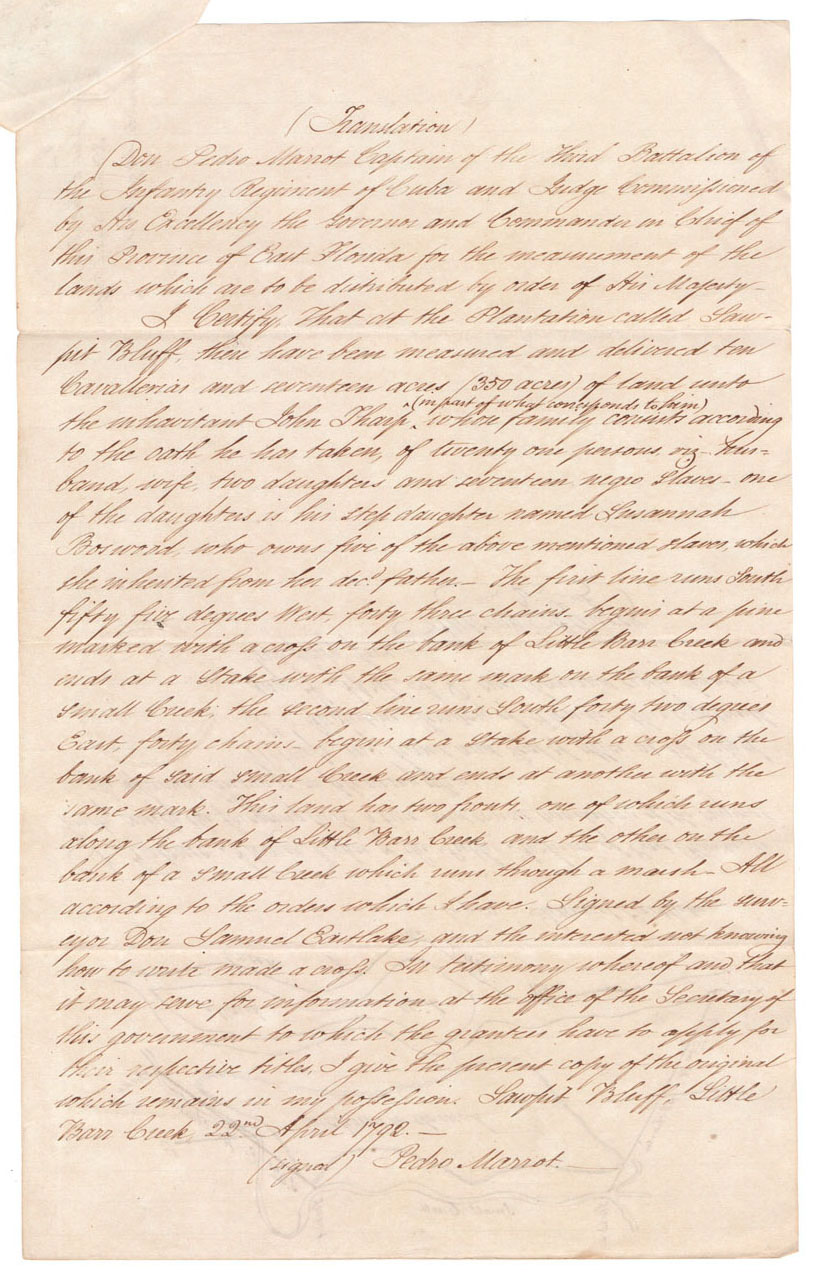 (Translation)
Don Pedro Marrot Captain of the Third Battalion of
the Infantry Regiment of Cuba and Judge Commissioned
by His Excellency the Governor and Commander in Chief of
this Province of East Florida for the measurement of the
lands which are to be distributed by order of His Majesty—
I Certify, That at the Plantation called Saw=
pit Bluff, there have been measured and delivered ten
Cavallerias and seventeen acres (350 acres) of land unto
(in part of what corresponds to him)
the inhabitant John Tharp ^ whose family consists according
to the oath he has taken, of twenty one persons, viz– hus=
band, wife, two daughters and seventeen negro Slaves– one
of the daughters is his step daughter named Susannah
Boswood, who owns five of the above mentioned slaves, which
she inherited from her decd. father.— The first line runs South
fifty five degrees West, forty three chains, begins at a pine
marked with a cross on the bank of Little Barr Creek and
ends at a Stake with the same mark on the bank of a
small Creek; the second line runs South forty two degrees
East, forty chains– begins at a Stake with a cross on the
bank of said small Creek and ends at another with the
same mark. This land has two fronts, one of which runs
along the bank of Little Barr Creek, and the other on the
bank of a small Creek which runs through a marsh– All
according to the orders which I have. Signed by the surv=
eyor Don Samuel Eastlake, and the interested not knowing
how to write made a cross. In testimony whereof and that
it may serve for information at the office of the Secretary of
this government to which the grantees have to apply for
their respective titles, I give the present copy of the original
which remains in my possession. Sawpit Bluff, Little
Barr Creek, 22nd April 1792.—
(signed) Pedro Marrot.—